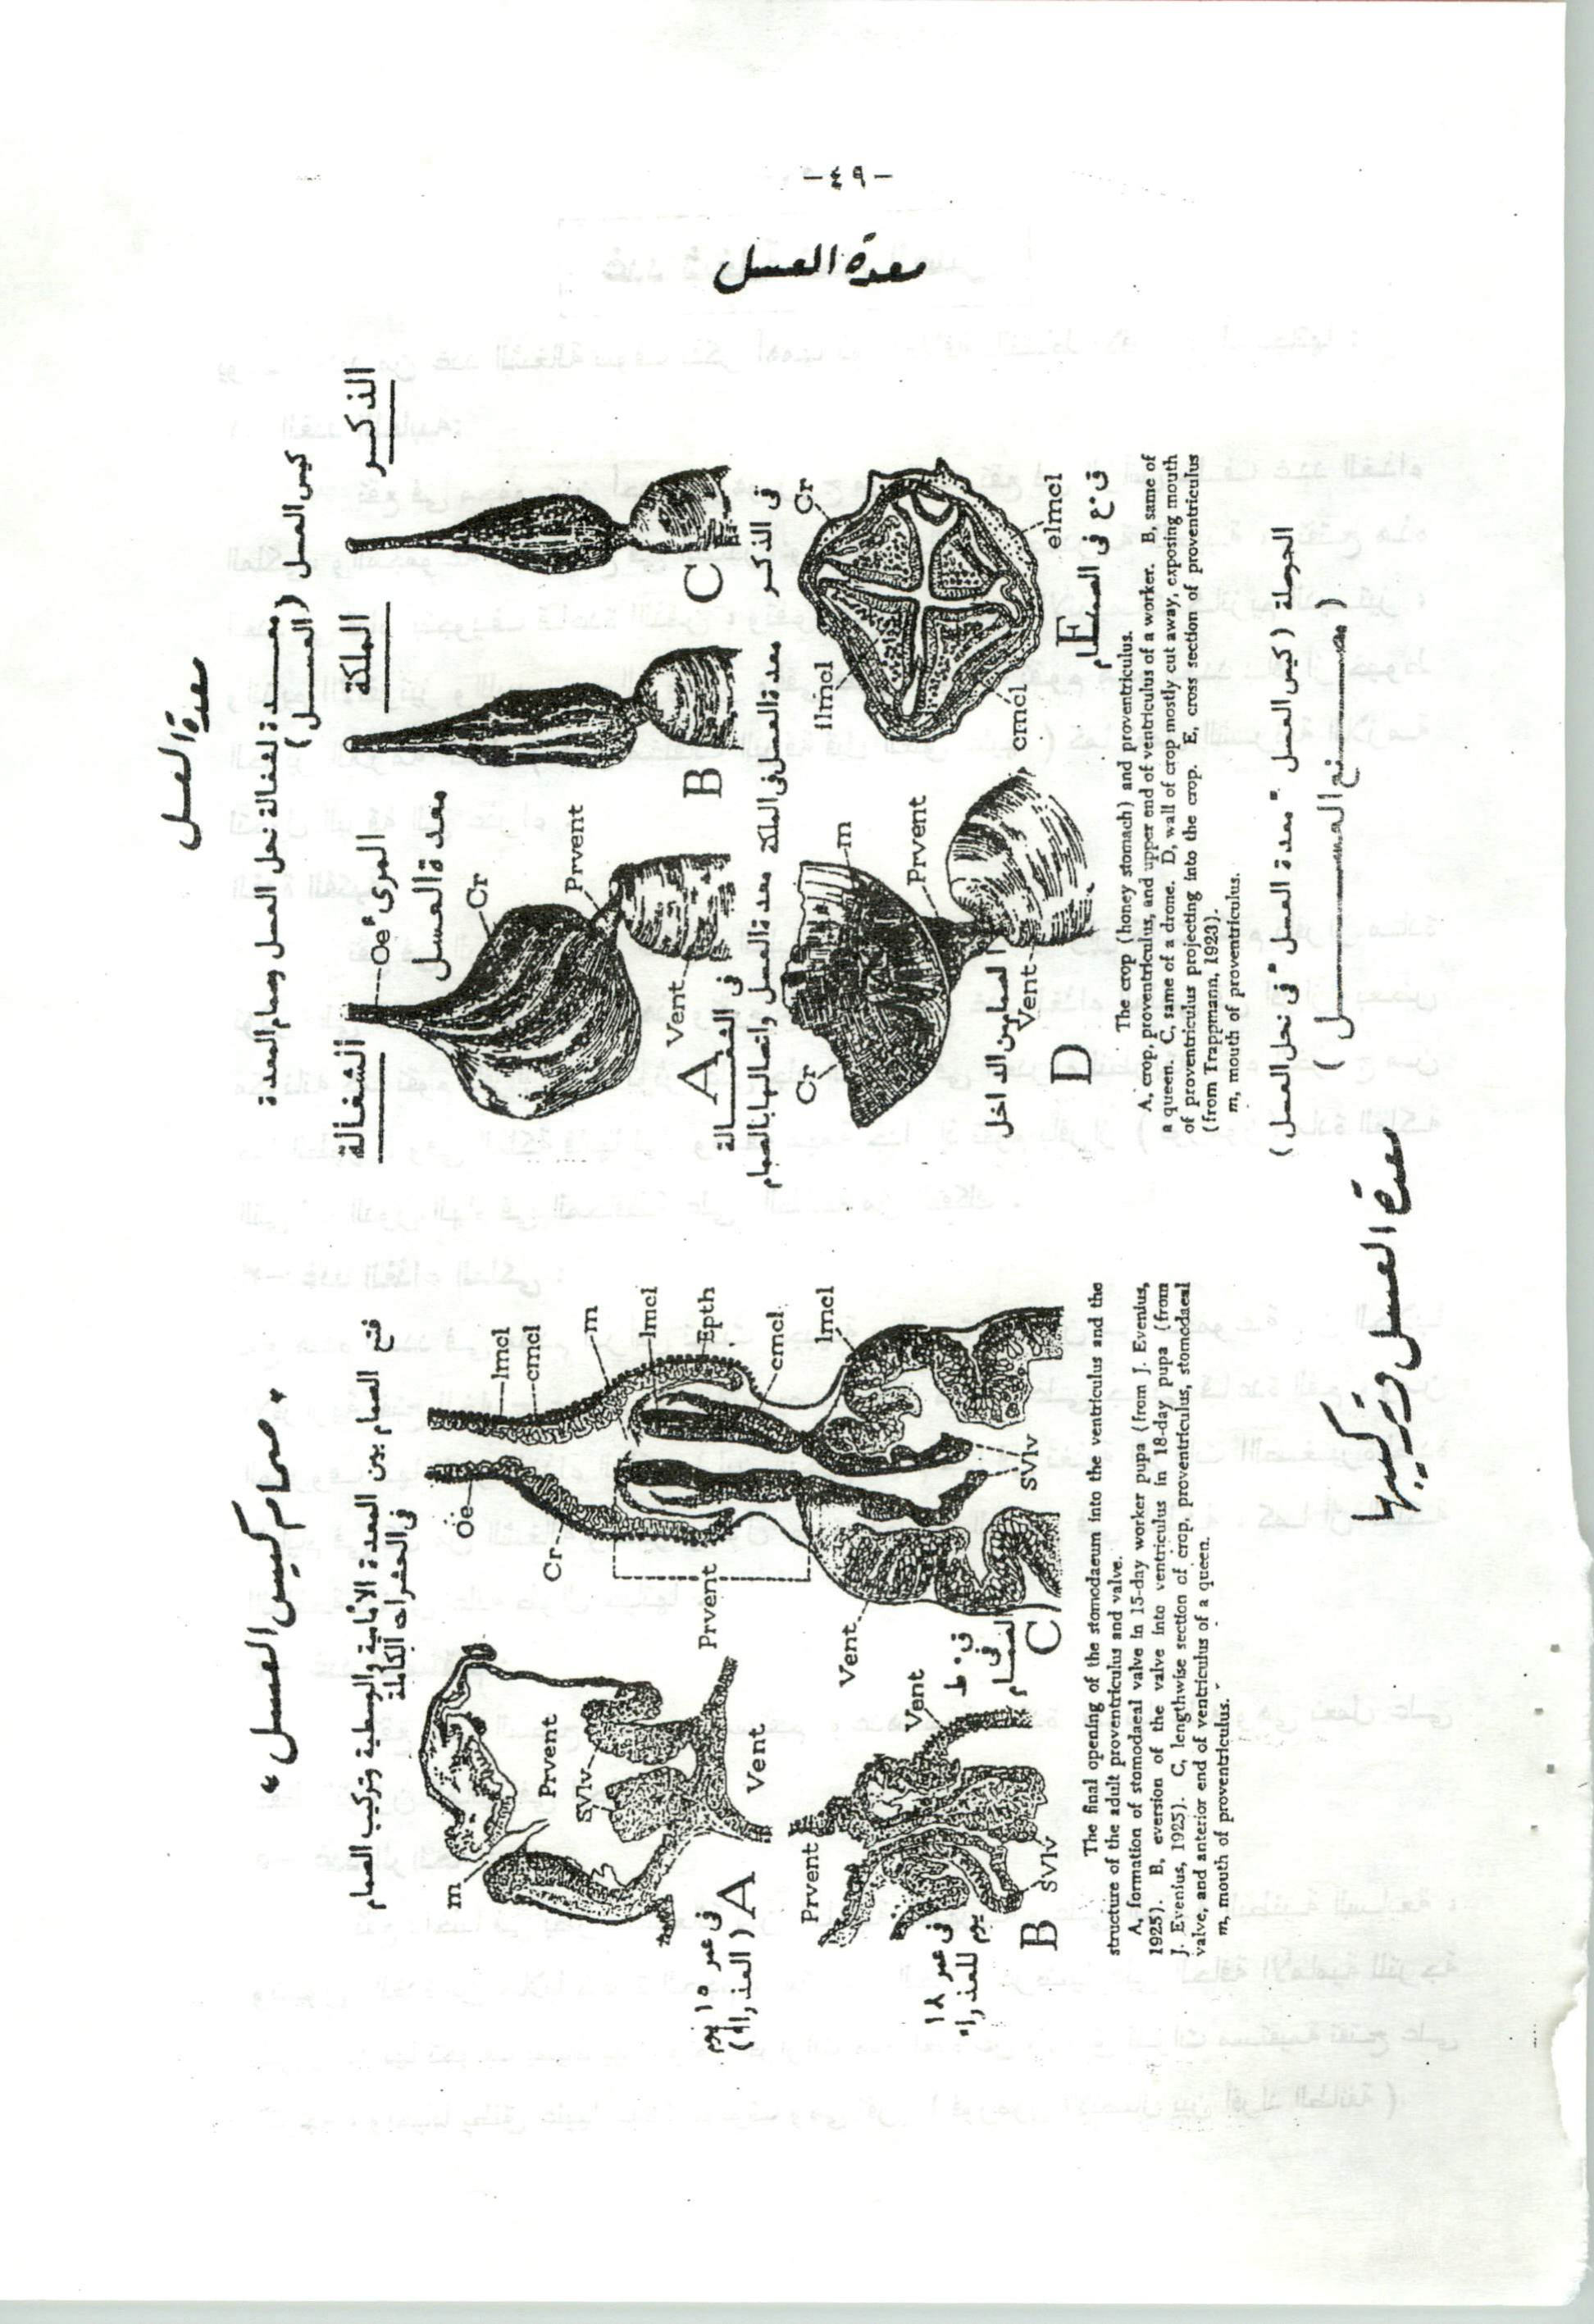 -٤٩-
معدة العسل
معدة العسل
معدة لشغالة نحل العسل وصمام المعدة (كيس العسل)
(العسل)
الشغالة
الملكة
الذكر
Oe المرىء
معدة العسل
Cr
Prvent
Vent
A
B
C
فى الشغالة
معدة العسل واتصالها بالصمام
معدة العسل فى الملكة
معدة العسل فى الذكر
Cr
m
Prvent
Vent
الصمام من الداخل
D
Cr
ilmcl
cmcl
elmcl
E
ق.ع فى الصمام
The crop (honey stomach) and proventriculus.
A, crop, proventriculus, and upper end of ventriculus of a worker. B, same of
a queen. C, same of a drone. D, wall of crop mostly cut away, exposing mouth
of proventriculus projecting into the crop. E, cross section of proventriculus
(from Trappmann, 1923).
m, mouth of proventriculus.
الحوصلة (كيس العسل " معدة العسل " فى نحل العسل)
" صمام كيس العسل "
فتح الصمام بين المعدة الأمامية والوسطية وتركيب الصمام
فى الحشرات الكاملة
m
Prvent
SVlv
Vent
A
فى عمر ١٥ يوم
(العذراء)
Prvent
Vent
SVlv
B
فى عمر ١٨
يوم للعذراء
Oe
Cr
Prvent
Vent
lmcl
cmcl
m
lmcl
Epth
cmcl
lmcl
SVlv
C
ق.ط
فى
الصمام
The final opening of the stomodaeum into the ventriculus and the
structure of the adult proventriculus and valve.
A, formation of stomodaeal valve in 15-day worker pupa (from J. Evenius,
1925). B, eversion of the valve into ventriculus in 18-day pupa (from
J. Evenius, 1925). C, lengthwise section of crop, proventriculus, stomodaeal
valve, and anterior end of ventriculus of a queen.
m, mouth of proventriculus.
معدة العسل وتركيبها